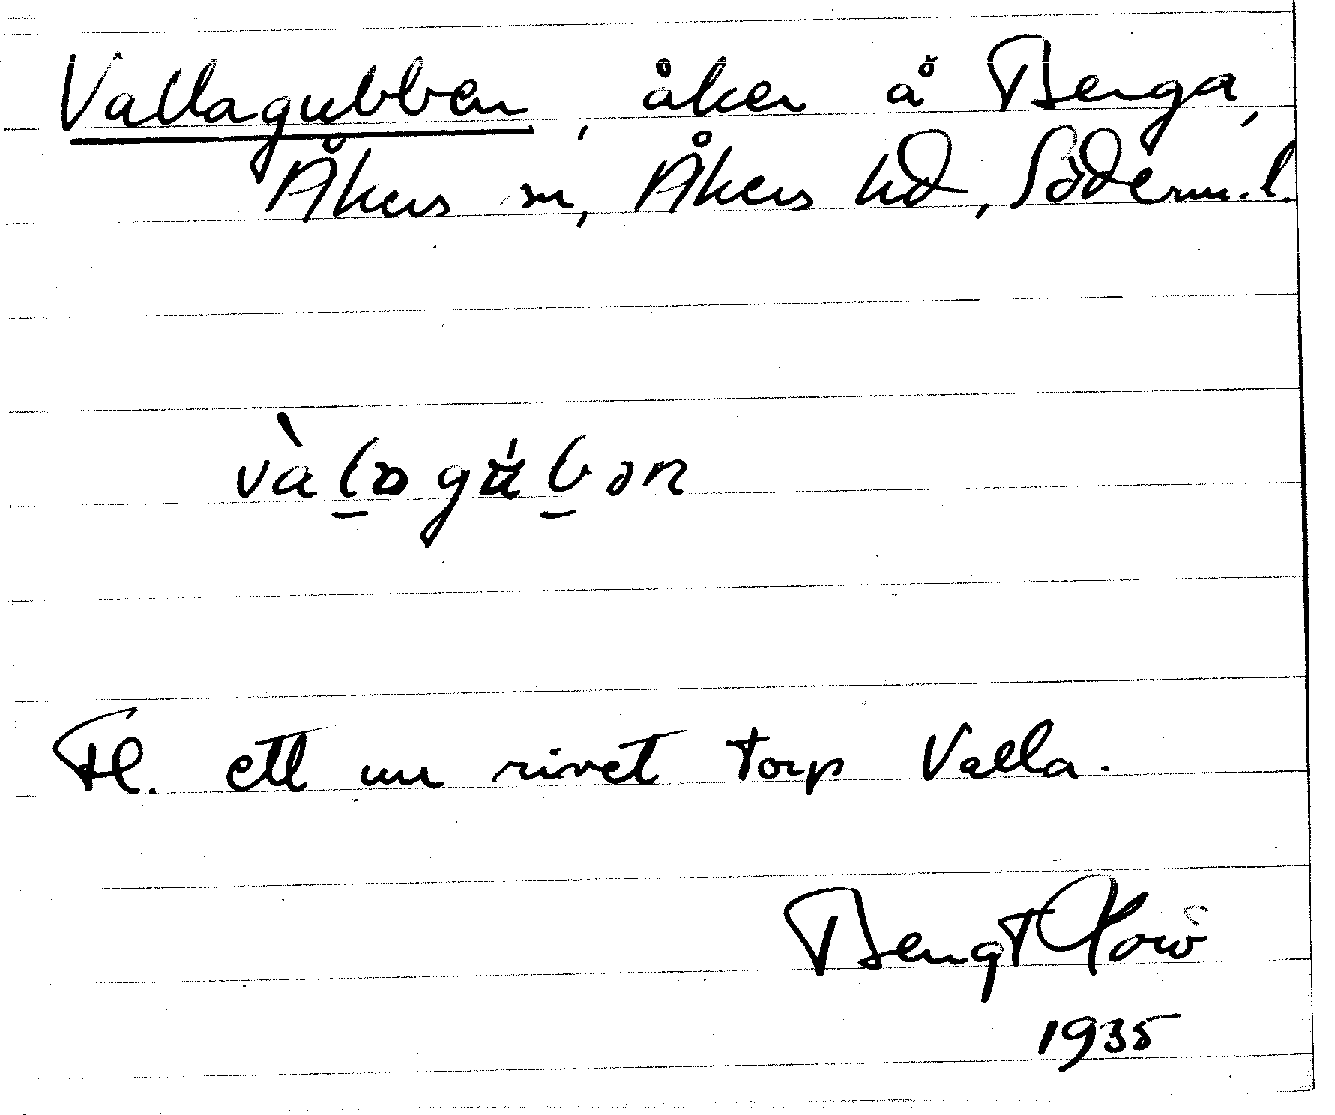 Vallagubben, åker å Berga,
Åkers sn, Åkers hd, Söderm. l.
Fl. ett nu rivet torp Valla.
Bengt
1935